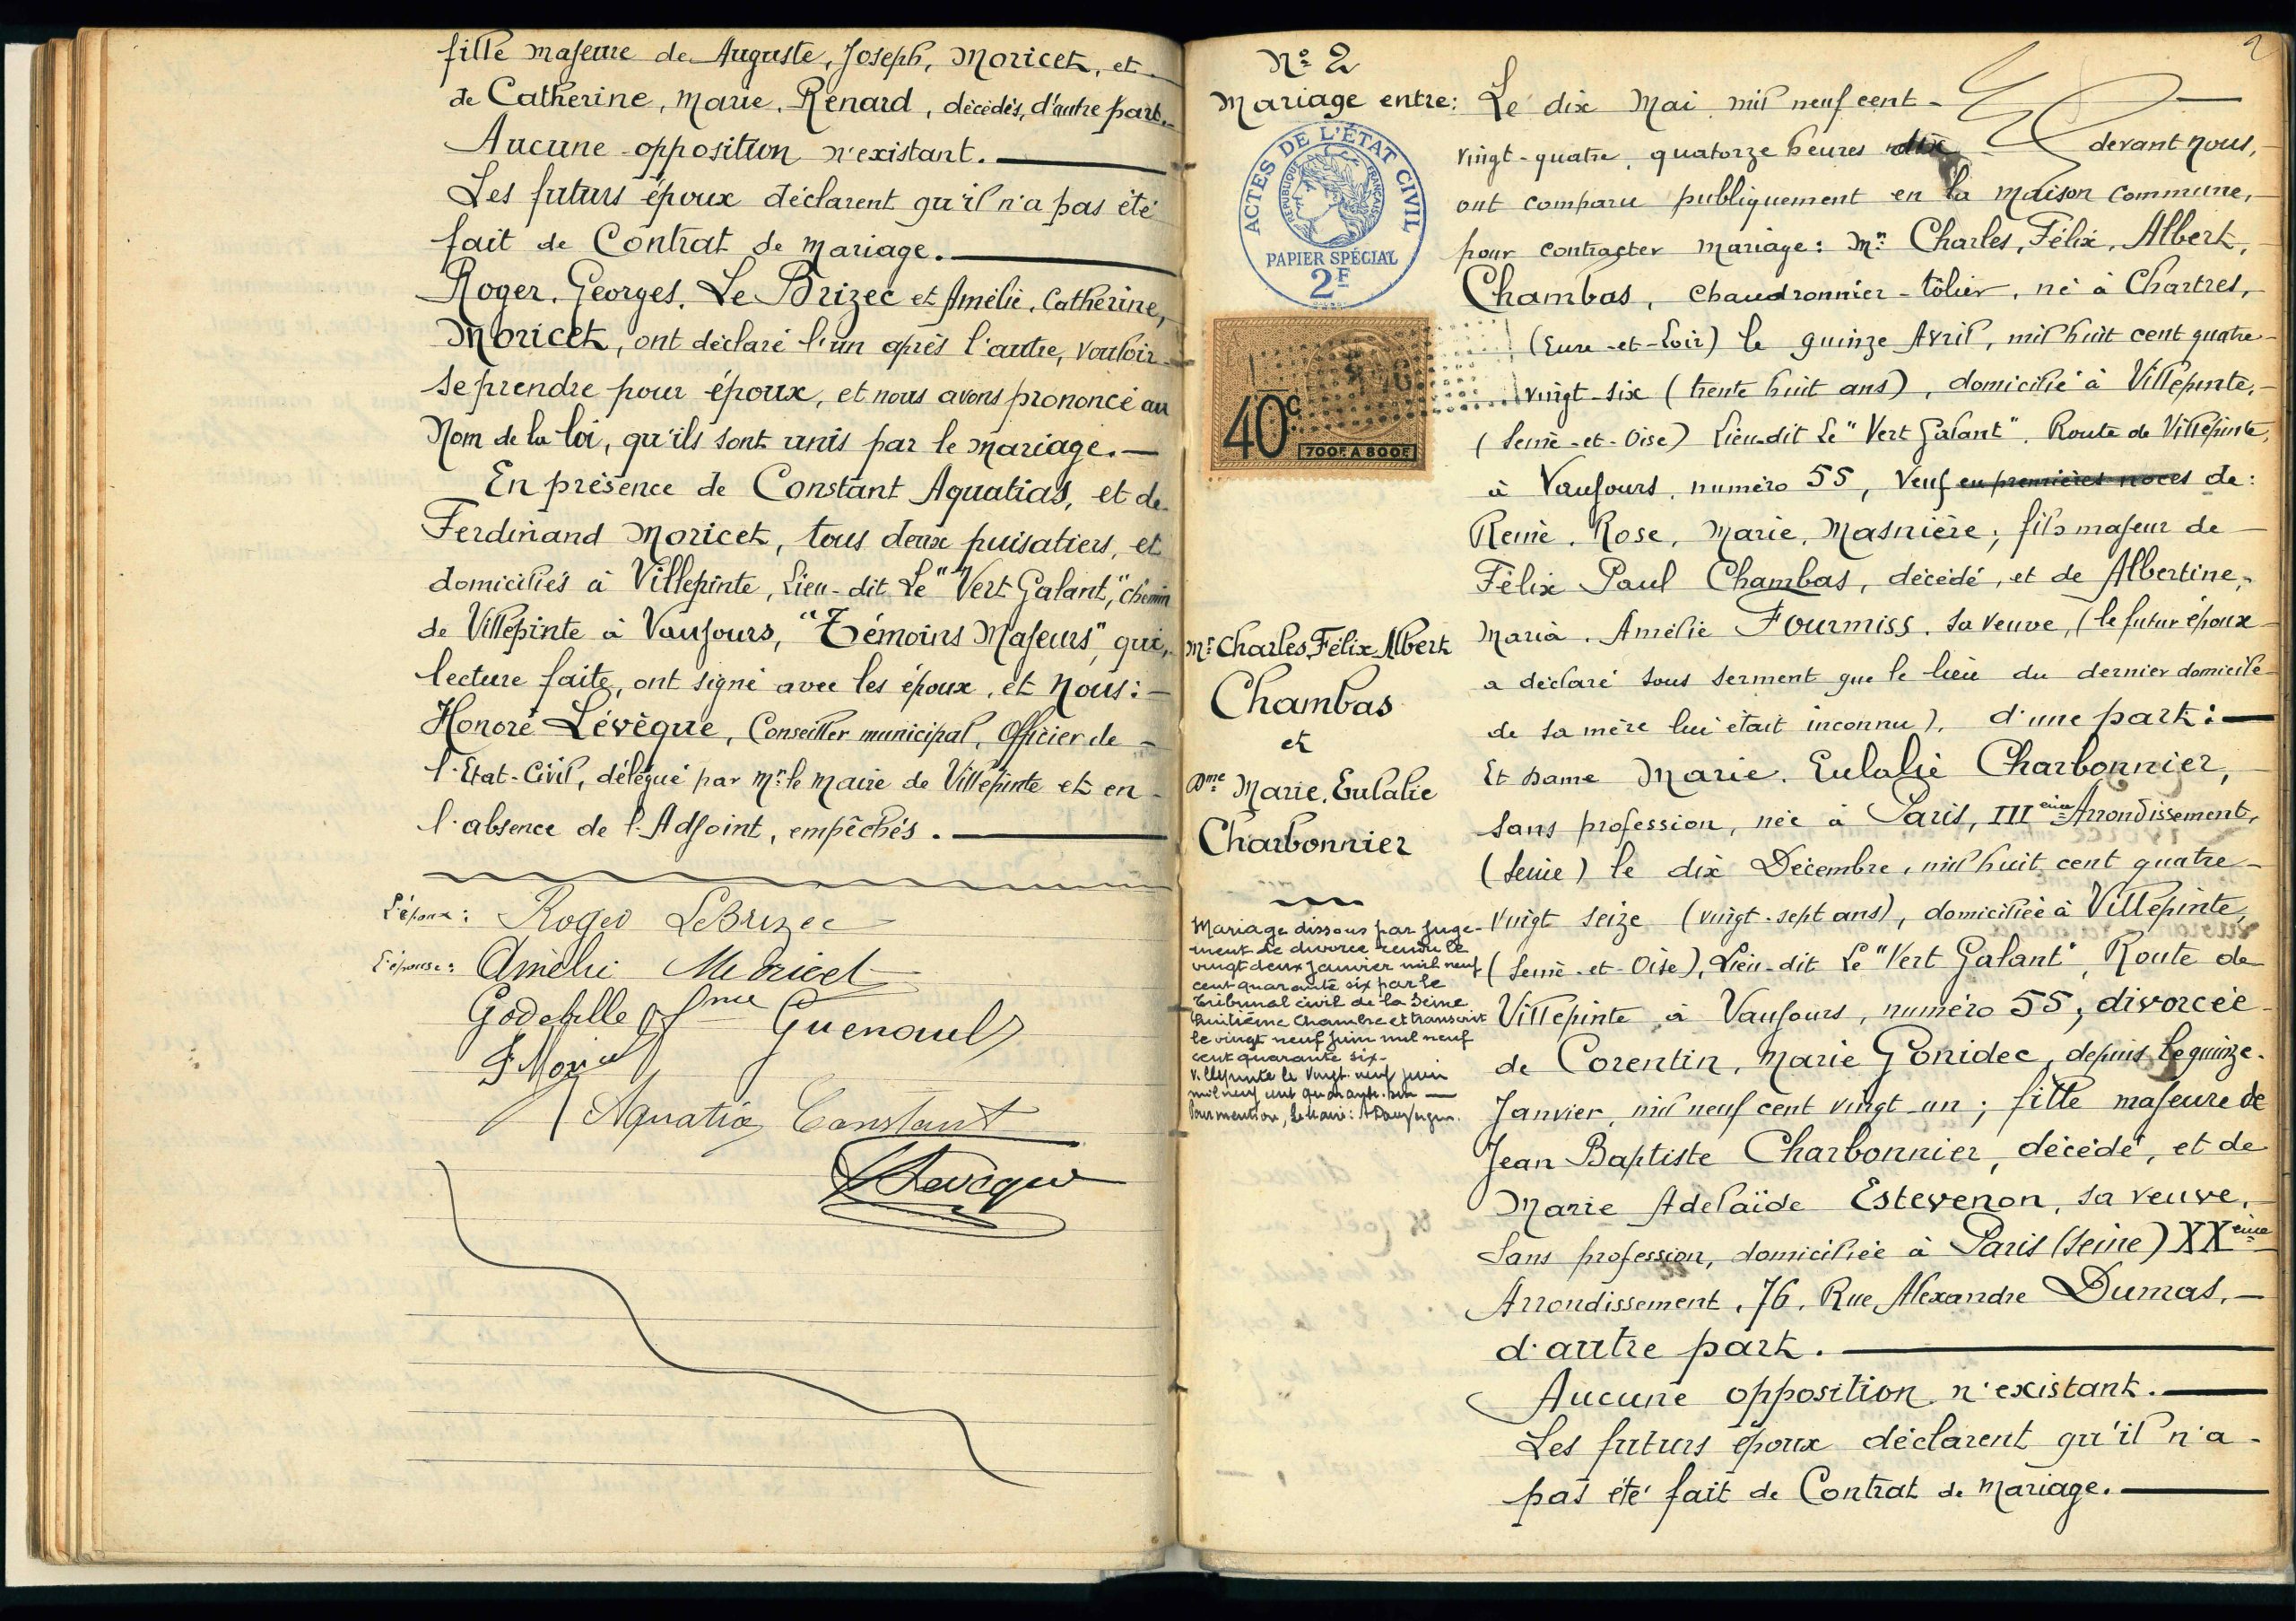 fille majeure de Auguste, Joseph, Moricet, et
de Catherine, Marie, Renard, décédés, d'autre part.
Aucune opposition n'existant.
Les futurs époux déclarent qu'il n'a pas été
fait de Contrat de mariage.
Roger, Georges, Le Brizec et Amélie, Catherine,
Moricet, ont déclaré l'un après l'autre, vouloir
se prendre pour époux, et nous avons prononcé au
Nom de la loi, qu'ils sont unis par le mariage.
En présence de Constant Aquatias, et de
Ferdinand Moricet, tous deux puisatiers, et
domiciliés à Villepinte, Lieu-dit Le "Vert Galant", chemin
de Villepinte à Vaujours, "Témoins Majeurs", qui,
lecture faite, ont signé avec les époux, et Nous:
Honoré Lévêque, Conseiller municipal, Officier de
l'Etat-Civil, délégué par Mr le Maire de Villepinte et en
l'absence de l'Adjoint, empêchés.
L'époux: Roger LeBrizec
L'épouse: Amélie Moricet
Godefille fme Guenoul
F Moricet
Aquatias Constant
Leveque
2
No 2
Mariage entre:
ACTES DE L'ÉTAT CIVIL
RÉPUBLIQUE FRANÇAISE
PAPIER SPÉCIAL
2F
40c
700F. A 800F.
Mr Charles, Félix, Albert
Chambas
et
Dme Marie, Eulalie
Charbonnier
Mariage dissous par juge-
ment de divorce rendu le
vingt deux janvier mil neuf
cent quarante six par le
Tribunal civil de la Seine
huitième chambre et transcrit
le vingt neuf juin mil neuf
cent quarante six.
Villepinte le vingt neuf juin
mil neuf cent quarante six
Pour mention, le Maire:
Le dix Mai mil neuf cent
vingt-quatre, quatorze heures dix devant Nous,
ont comparu publiquement en la maison commune,
pour contracter mariage: Mr Charles, Félix, Albert,
Chambas, Chaudronnier-tôlier, né à Chartres,
(Eure-et-Loir) le quinze Avril, mil huit cent quatre
vingt-six (trente huit ans), domicilié à Villepinte,
(Seine-et-Oise) Lieu-dit Le "Vert Galant". Route de Villepinte,
à Vaujours, numéro 55, Veuf en premières noces de:
Reine, Rose, Marie, Masnière; fils majeur de
Félix Paul Chambas, décédé, et de Albertine,
Maria, Amélie Fourmiss, sa veuve, (le futur époux
a déclaré sous serment que le lieu du dernier domicile
de sa mère lui était inconnu), d'une part:
Et Dame Marie, Eulalie Charbonnier,
sans profession, née à Paris, IIIème Arrondissement,
(Seine) le dix Décembre, mil huit cent quatre
vingt seize (vingt-sept ans), domiciliée à Villepinte,
(Seine-et-Oise), Lieu-dit Le "Vert Galant", Route de
Villepinte à Vaujours, numéro 55; divorcée
de Corentin, Marie Gonidec, depuis le quinze
Janvier, mil neuf cent vingt-un; fille majeure de
Jean Baptiste Charbonnier, décédé, et de
Marie Adelaïde Estevenon, sa veuve,
Sans profession, domiciliée à Paris (Seine) XXème
Arrondissement, 76, Rue Alexandre Dumas,
d'autre part.
Aucune opposition n'existant.
Les futurs époux déclarent qu'il n'a
pas été fait de Contrat de Mariage.